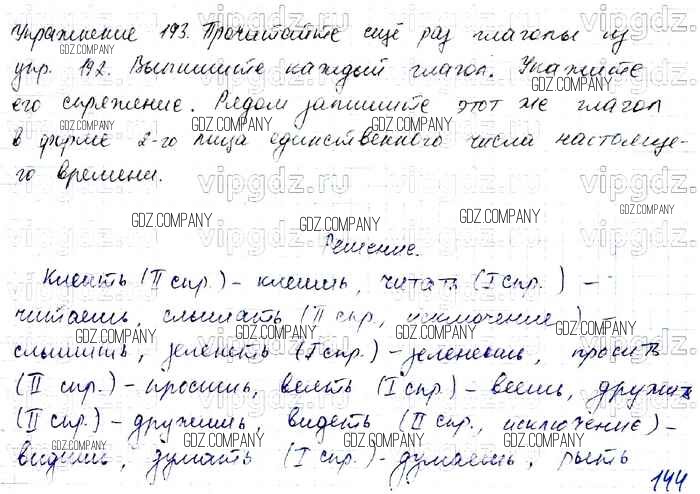 Упражнение 193. Прочитайте ещё раз глаголы из
упр. 192. Выпишите каждый глагол. Укажите
его спряжение. Рядом запишите этот же глагол
в форме 2-го лица единственного числа настояще-
го времени.
Решение.
Клеить (II спр.) - клеишь, читать (I спр.) -
читаешь, слышать (II спр., исключение) -
слышишь, зеленеть (I спр.) - зеленеешь, просить
(II спр.) - просишь, веять (I спр.) - веешь, дружить
(II спр.) - дружишь, видеть (II спр., исключение) -
видишь, думать (I спр.) - думаешь, рыть
144
vipgdz.ru
GDZ.COMPANY